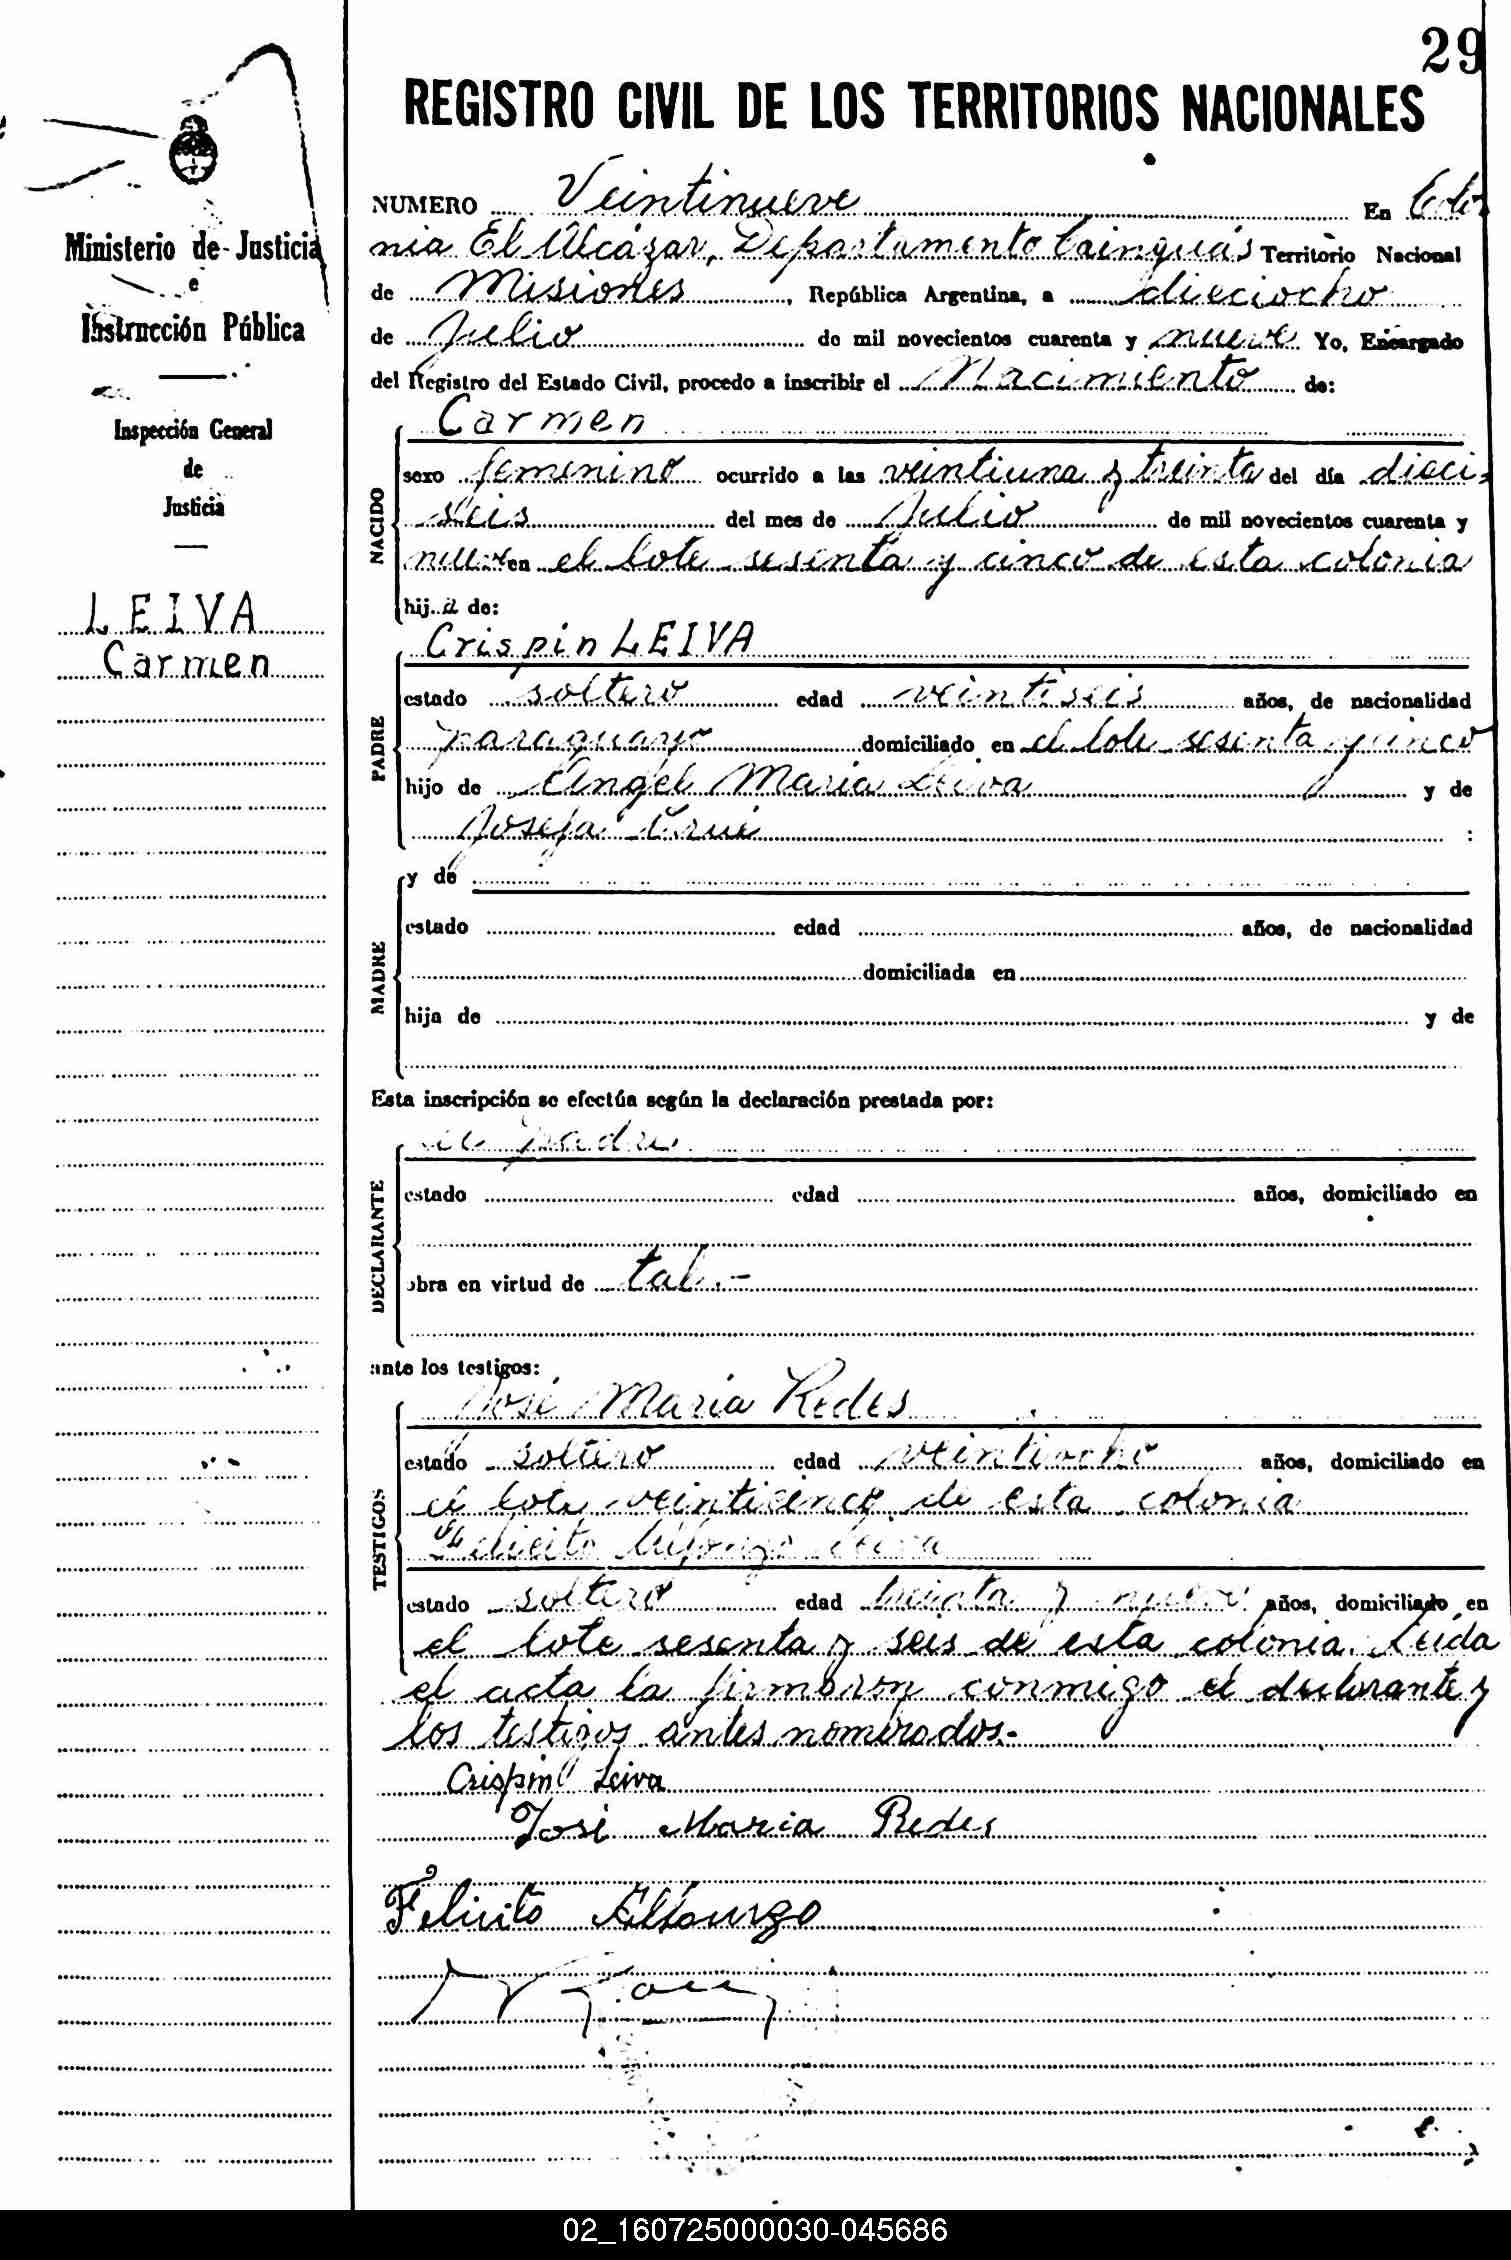 29
REGISTRO CIVIL DE LOS TERRITORIOS NACIONALES
Ministerio de Justicia
e
Instrucción Pública
Inspección General
de
Justicia
LEIVA
Carmen
NUMERO Veintinueve En Colo
nia El Alcázar, Departamento Cainguás Territorio Nacional
de Misiones, República Argentina, a dieciocho
de Julio de mil novecientos cuarenta y nueve Yo, Encargado
del Registro del Estado Civil, procedo a inscribir el Nacimiento de:
NACIDO
Carmen
sexo femenino ocurrido a las veintiuna y treinta del día dieci-
seis del mes de Julio de mil novecientos cuarenta y
nueve en el lote sesenta y cinco de esta colonia
hija de:
PADRE
Crispin LEIVA
estado soltero edad veintiseis años, de nacionalidad
paraguayo domiciliado en el lote sesenta y cinco
hijo de Angel Maria Leiva y de
Josefa :
MADRE
y de
estado edad años, de nacionalidad
domiciliada en
hija de y de
Esta inscripción se efectúa según la declaración prestada por:
DECLARANTE
padre
estado edad años, domiciliado en
obra en virtud de tal.-
ante los testigos:
TESTIGOS
José Maria Redes
estado soltero edad veintiocho años, domiciliado en
el lote veinticinco de esta colonia
Felicito Alfonzo Leiva
estado soltero edad treinta y nueve años, domiciliado en
el lote sesenta y seis de esta colonia. Leida
el acta la firmaron conmigo el declarante y
los testigos antes nombrados.-
Crispin Leiva
José Maria Redes
Felicito Alfonzo
02_160725000030-045686